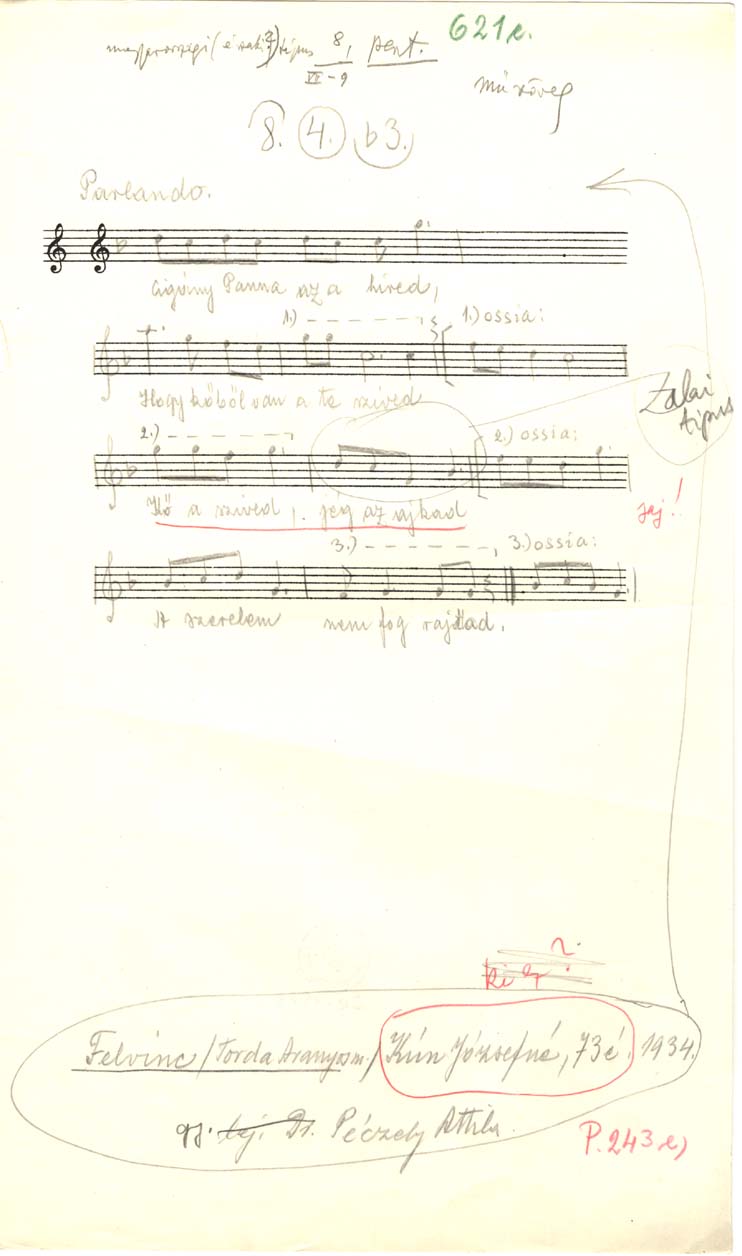 621e.
magyarországi (északi?) típus 8, pent.
VII-9
műszöveg
8. 4. b3.
Parlando.
Cigány Panna az a híred,
1.) 1.) ossia:
Hogy kőből van a te szíved
Zalai
típus
2.) 2.) ossia:
Kő a szíved, jég az ajkad
jaj!
3.) 3.) ossia:
A szerelem nem fog rajtad.
ki ez?
Felvinc / Torda Aranyosm. / Kún Józsefné, 73é. 1934.
gy. lej. Dr. Péczely Attila.
P. 243 e)